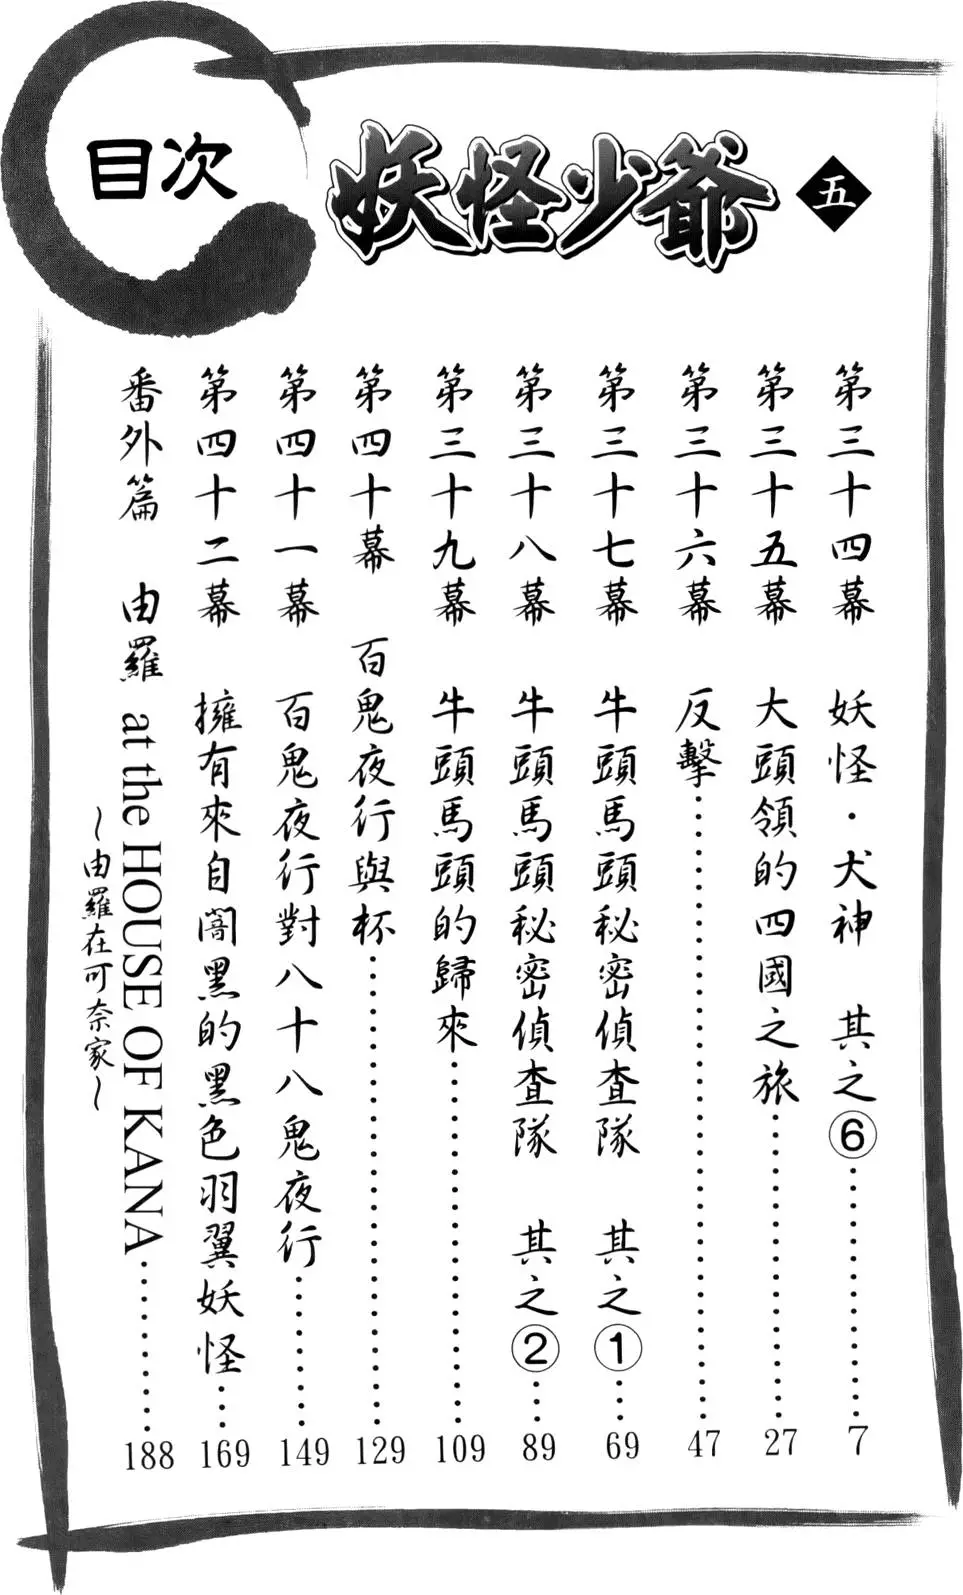 目次
妖怪少爺
五
第三十四幕 妖怪・犬神 其之⑥……………7
第三十五幕 大頭領的四國之旅……………27
第三十六幕 反擊……………47
第三十七幕 牛頭馬頭秘密偵查隊 其之①……69
第三十八幕 牛頭馬頭秘密偵查隊 其之②……89
第三十九幕 牛頭馬頭的歸來……………109
第四十幕 百鬼夜行與杯……………129
第四十一幕 百鬼夜行對八十八鬼夜行……………149
第四十二幕 擁有來自闇黑的黑色羽翼妖怪……169
番外篇 由羅 at the HOUSE OF KANA……………188
～由羅在可奈家～